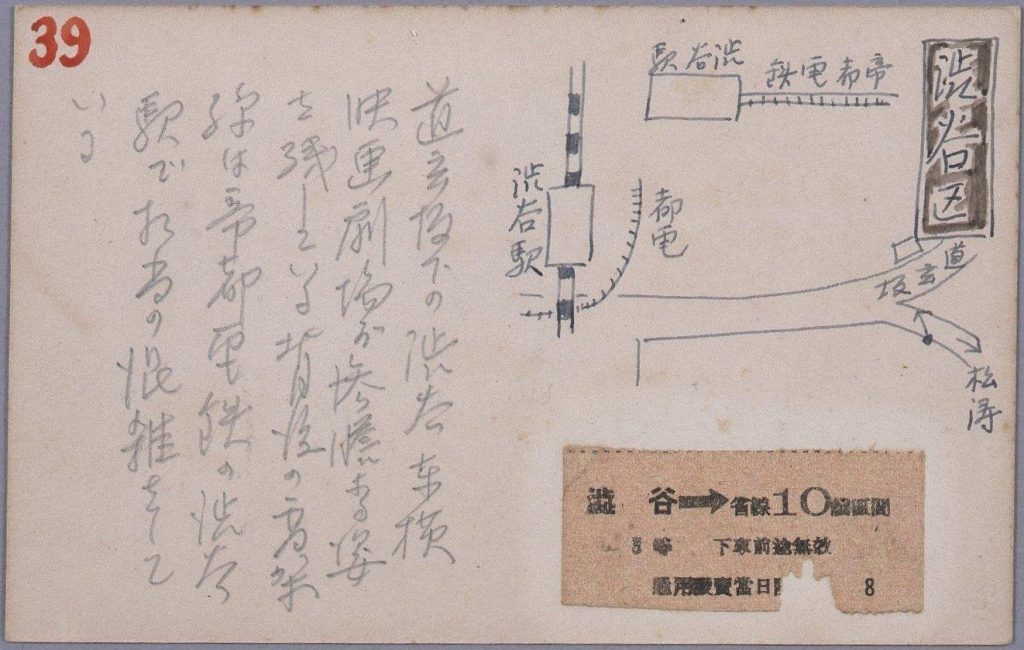 39
渋谷区
帝都電鉄
渋谷駅
道玄坂
都電
渋谷駅
松涛
道玄坂下の渋谷東横
映画劇場が惨憺たる姿
を残している 背後の高架
線は帝都電鉄の渋谷
駅で相当の混雑をして
いる
澁谷→省線10錢區間
3等 下車前途無效
通用發賣當日限
8